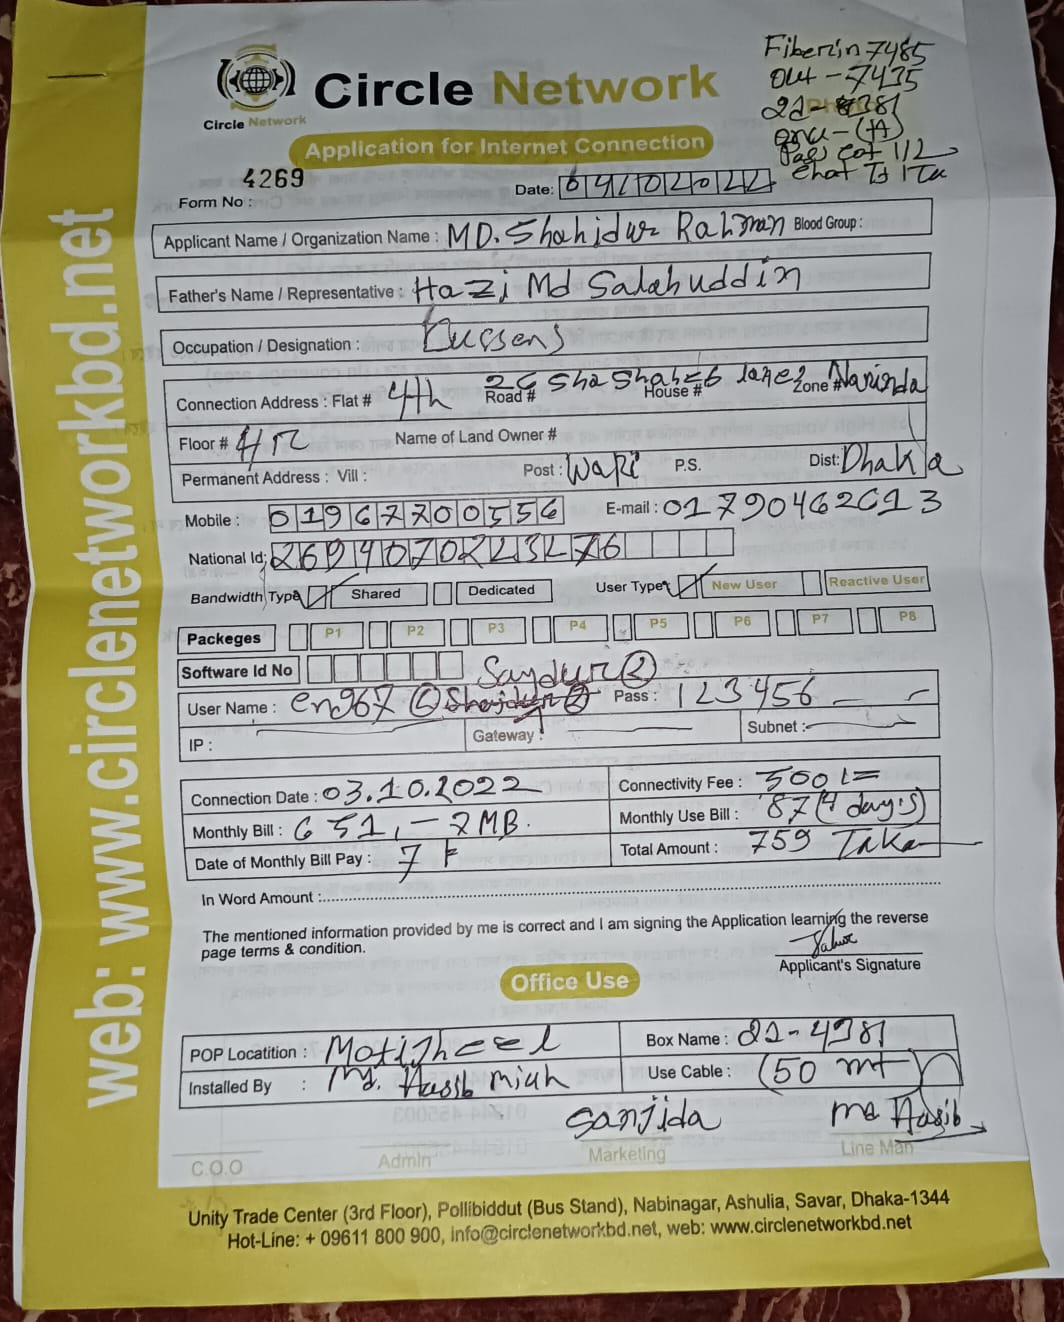 Fiberin 7485
out - 7435
onu - (A)
Circle Network
Circle Network
Application for Internet Connection
4269
Form No :
Date: 04102022
Applicant Name / Organization Name : MD. Shahidur Rahman Blood Group :
Father's Name / Representative : Hazi Md Salahuddin
Occupation / Designation :
Connection Address : Flat # 4th Road # House # Zone # Narinda
Floor # Name of Land Owner #
Permanent Address : Vill : Post : Wari P.S. Dist: Dhaka
Mobile : 01967700556 E-mail : 01790462613
National Id:
Bandwidth Type Shared Dedicated User Type New User Reactive User
Packeges P1 P2 P3 P4 P5 P6 P7 P8
Software Id No Saydur 2
User Name : en967 Pass : 123456
IP : Gateway : Subnet :
Connection Date : 03.10.2022 Connectivity Fee : 500/=
Monthly Bill : 651,- 7MB. Monthly Use Bill : 87 (4 day's)
Date of Monthly Bill Pay : 7 Total Amount : 759 Taka
In Word Amount :
The mentioned information provided by me is correct and I am signing the Application learning the reverse
page terms & condition.
Applicant's Signature
Office Use
POP Locatition : Motijheel Box Name : 22-4381
Installed By : Md. Hasib miah Use Cable : 150 mt
Sanjida md Hasib
C.O.O Admin Marketing Line Man
Unity Trade Center (3rd Floor), Pollibiddut (Bus Stand), Nabinagar, Ashulia, Savar, Dhaka-1344
Hot-Line: + 09611 800 900, info@circlenetworkbd.net, web: www.circlenetworkbd.net
web: www.circlenetworkbd.net